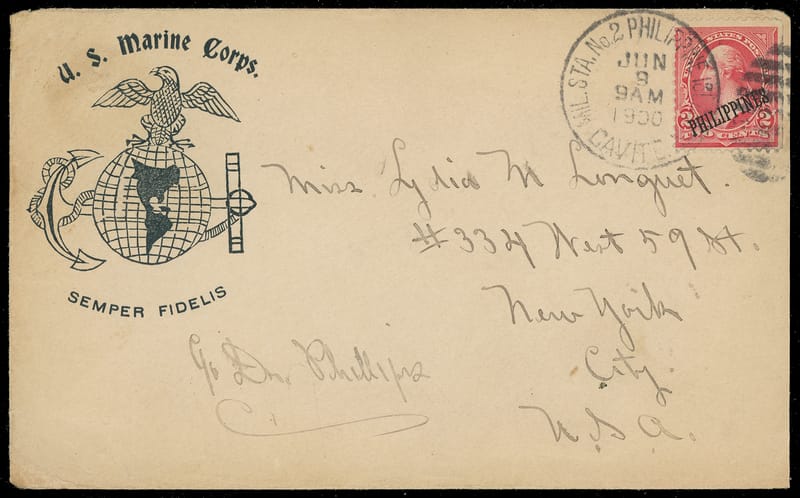 U. S. Marine Corps.
SEMPER FIDELIS
MIL. STA. No. 2 PHILIPPINE
JUN
9
9AM
1900
CAVITE
STATES POS
PHILIPPINES
2 TWO CENTS 2
Miss Lydia M Longuet.
# 334 West 59 St.
New York
City.
U.S.A.
c/o Dr. Phillips